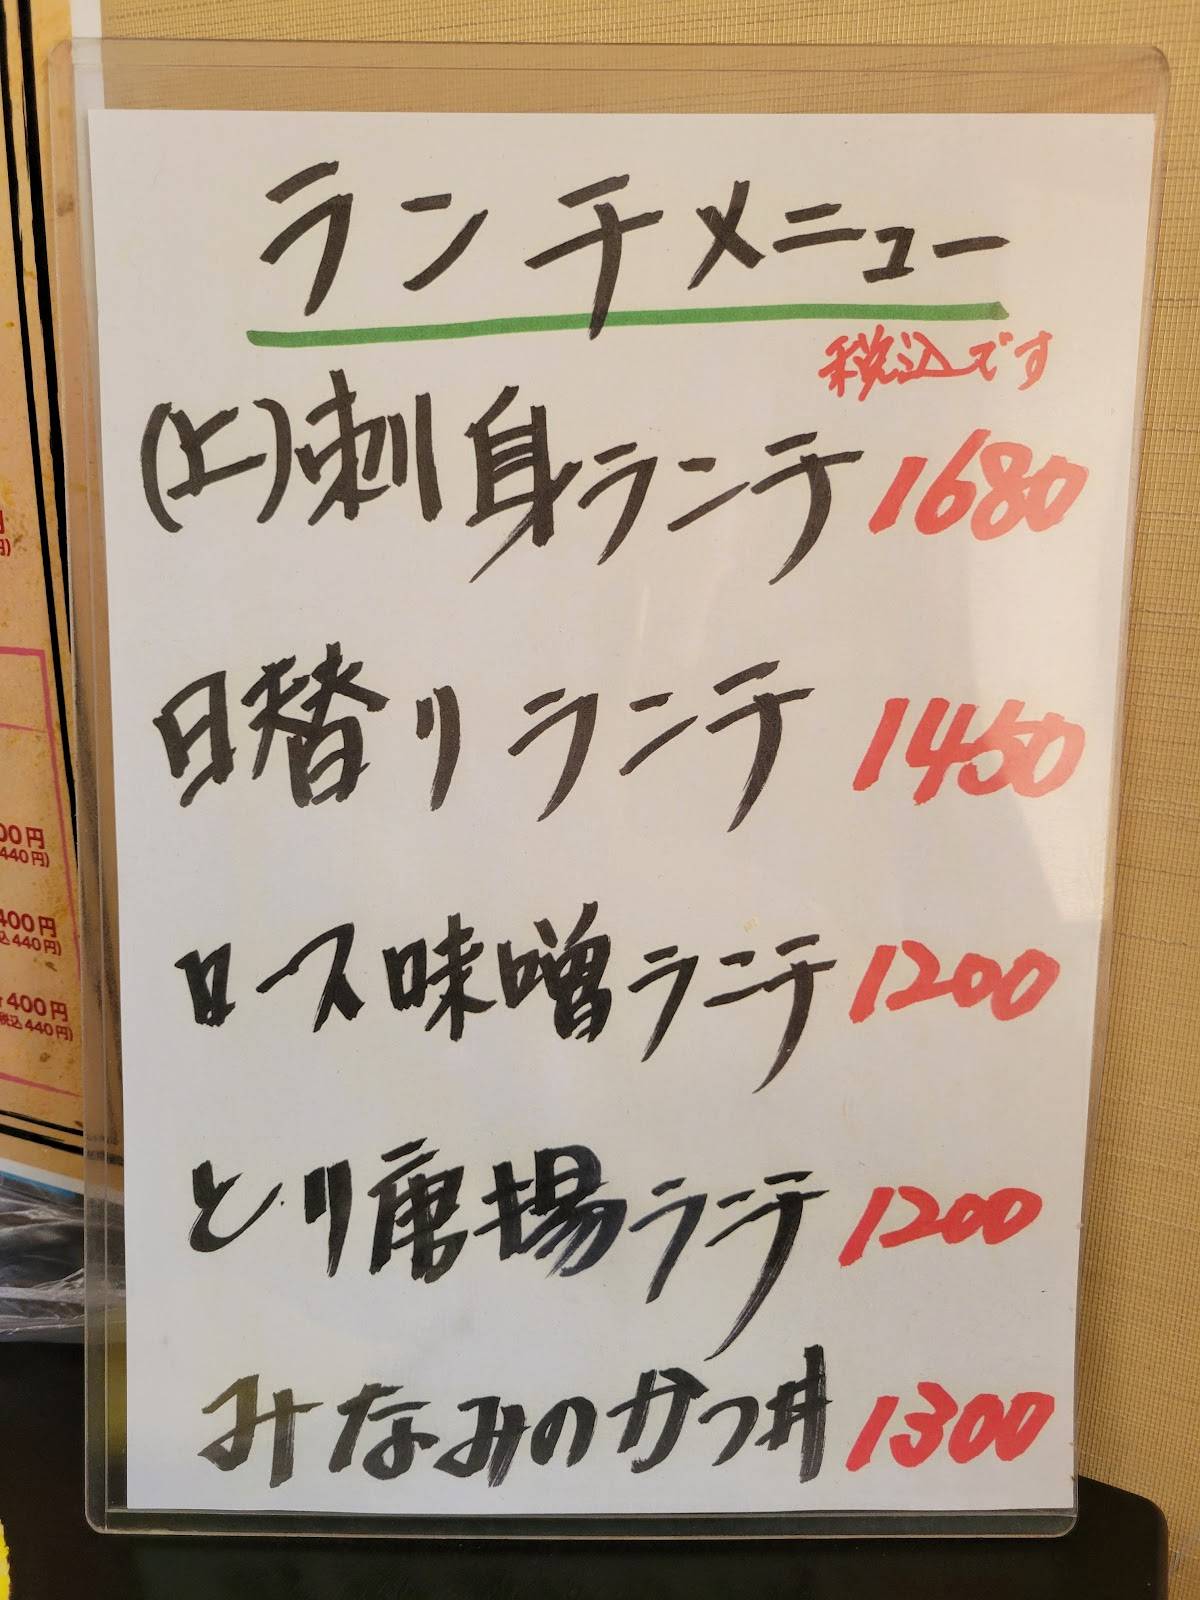 ランチメニュー
税込です
(上)刺身ランチ 1680
日替りランチ 1450
ロース味噌ランチ 1200
とり唐揚ランチ 1200
みなみのかつ丼 1300
00円
440円)
400円
込440円)
400円
税込440円)